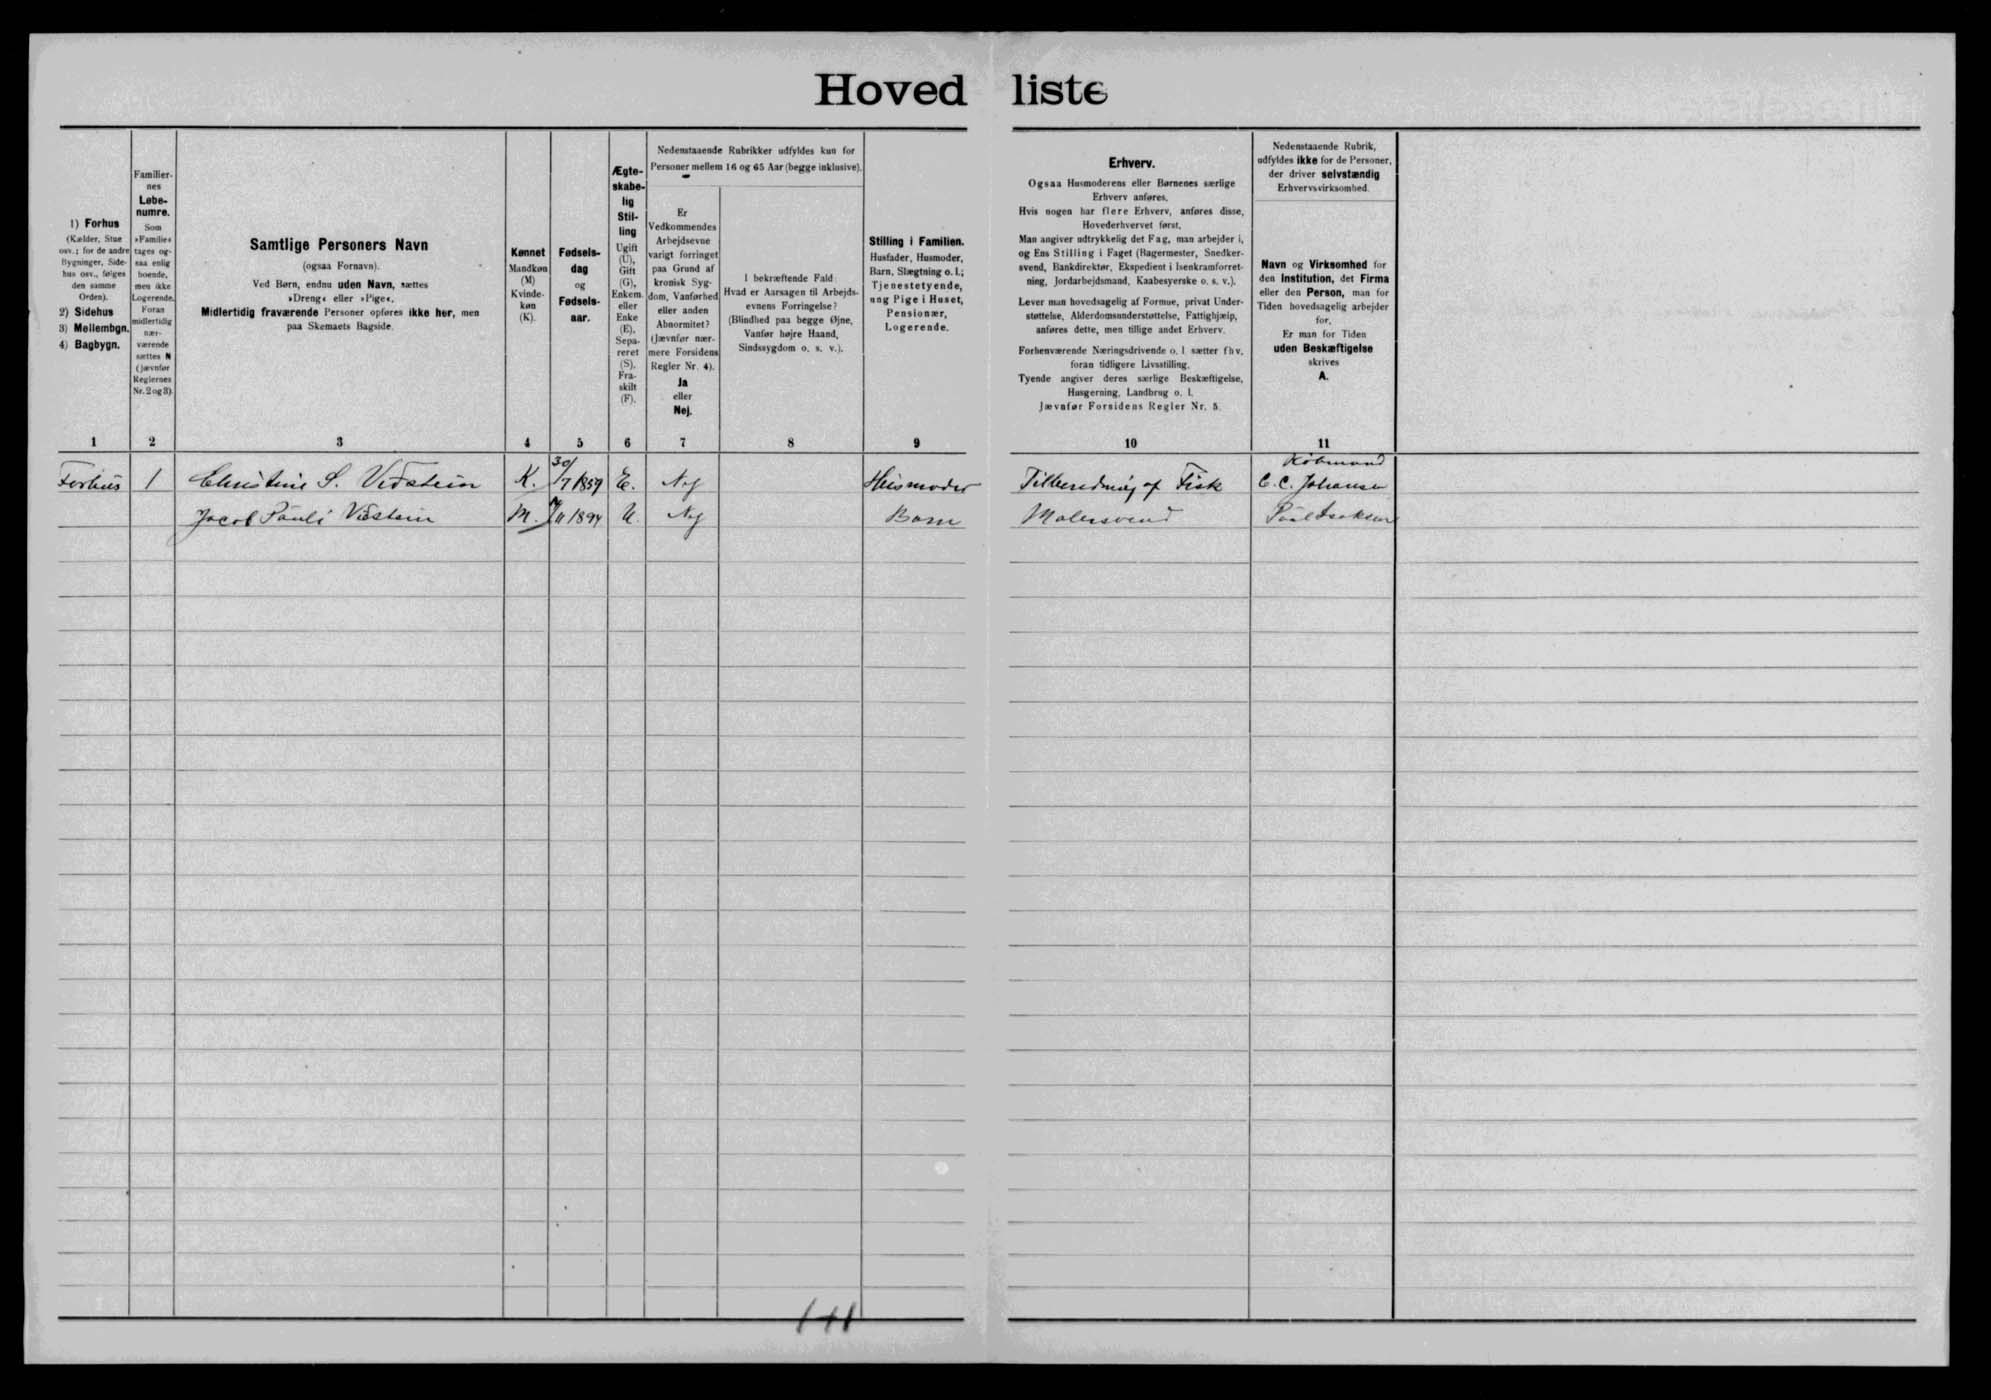 Hovedliste
1) Forhus
(Kælder, Stue
osv.; for de andre
Bygninger, Side-
hus osv., følges
den samme
Orden).
2) Sidehus
3) Mellembgn.
4) Bagbygn.
Familier-
nes
Løbe-
numre.
Som
»Familie«
tages og-
saa enlig
boende,
men ikke
Logerende.
Foran
midlertidig
nær-
værende
sættes N
(jævnfør
Reglernes
Nr. 2 og 3).
Samtlige Personers Navn
(ogsaa Fornavn).
Ved Børn, endnu uden Navn, sættes
»Dreng« eller »Pige«.
Midlertidig fraværende Personer opføres ikke her, men
paa Skemaets Bagside.
Kønnet
Mandkøn
(M)
Kvinde-
køn
(K).
Fødsels-
dag
og
Fødsels-
aar.
Ægte-
skabe-
lig
Stil-
ling
Ugift
(U),
Gift
(G),
Enkem.
eller
Enke
(E),
Sepa-
reret
(S),
Fra-
skilt
(F).
Nedenstaaende Rubrikker udfyldes kun for
Personer mellem 16 og 65 Aar (begge inklusive).
Er
Vedkommendes
Arbejdsevne
varigt forringet
paa Grund af
kronisk Syg-
dom, Vanførhed
eller anden
Abnormitet?
(Jævnfør nær-
mere Forsidens
Regler Nr. 4).
Ja
eller
Nej.
I bekræftende Fald:
Hvad er Aarsagen til Arbejds-
evnens Forringelse?
(Blindhed paa begge Øjne,
Vanfør højre Haand,
Sindssygdom o. s. v.).
Stilling i Familien.
Husfader, Husmoder,
Barn, Slægtning o. l.;
Tjenestetyende,
ung Pige i Huset,
Pensionær,
Logerende.
Erhverv.
Ogsaa Husmoderens eller Børnenes særlige
Erhverv anføres.
Hvis nogen har flere Erhverv, anføres disse,
Hovederhvervet først.
Man angiver udtrykkelig det Fag, man arbejder i,
og Ens Stilling i Faget (Bagermester, Snedker-
svend, Bankdirektør, Ekspedient i Isenkramforret-
ning, Jordarbejdsmand, Kaabesyerske o. s. v.).
Lever man hovedsagelig af Formue, privat Under-
støttelse, Alderdomsunderstøttelse, Fattighjælp,
anføres dette, men tillige andet Erhverv.
Forhenværende Næringsdrivende o. l. sætter fhv.
foran tidligere Livsstilling.
Tyende angiver deres særlige Beskæftigelse,
Husgerning, Landbrug o. l.
Jævnfør Forsidens Regler Nr. 5.
Nedenstaaende Rubrik,
udfyldes ikke for de Personer,
der driver selvstændig
Erhvervsvirksomhed.
Navn og Virksomhed for
den Institution, det Firma
eller den Person, man for
Tiden hovedsagelig arbejder
for.
Er man for Tiden
uden Beskæftigelse
skrives
A.
1 2 3 4 5 6 7 8 9 10 11
Forhus 1 Christine S. Vidstein K. 30/7 1859 E. Nej Husmoder Tilberedning af Fisk Købmand C. C. Johansen
Jacob Pauli Vidstein M. /11 1894 U. Nej Barn Malersvend Poul Isaksen
1+1